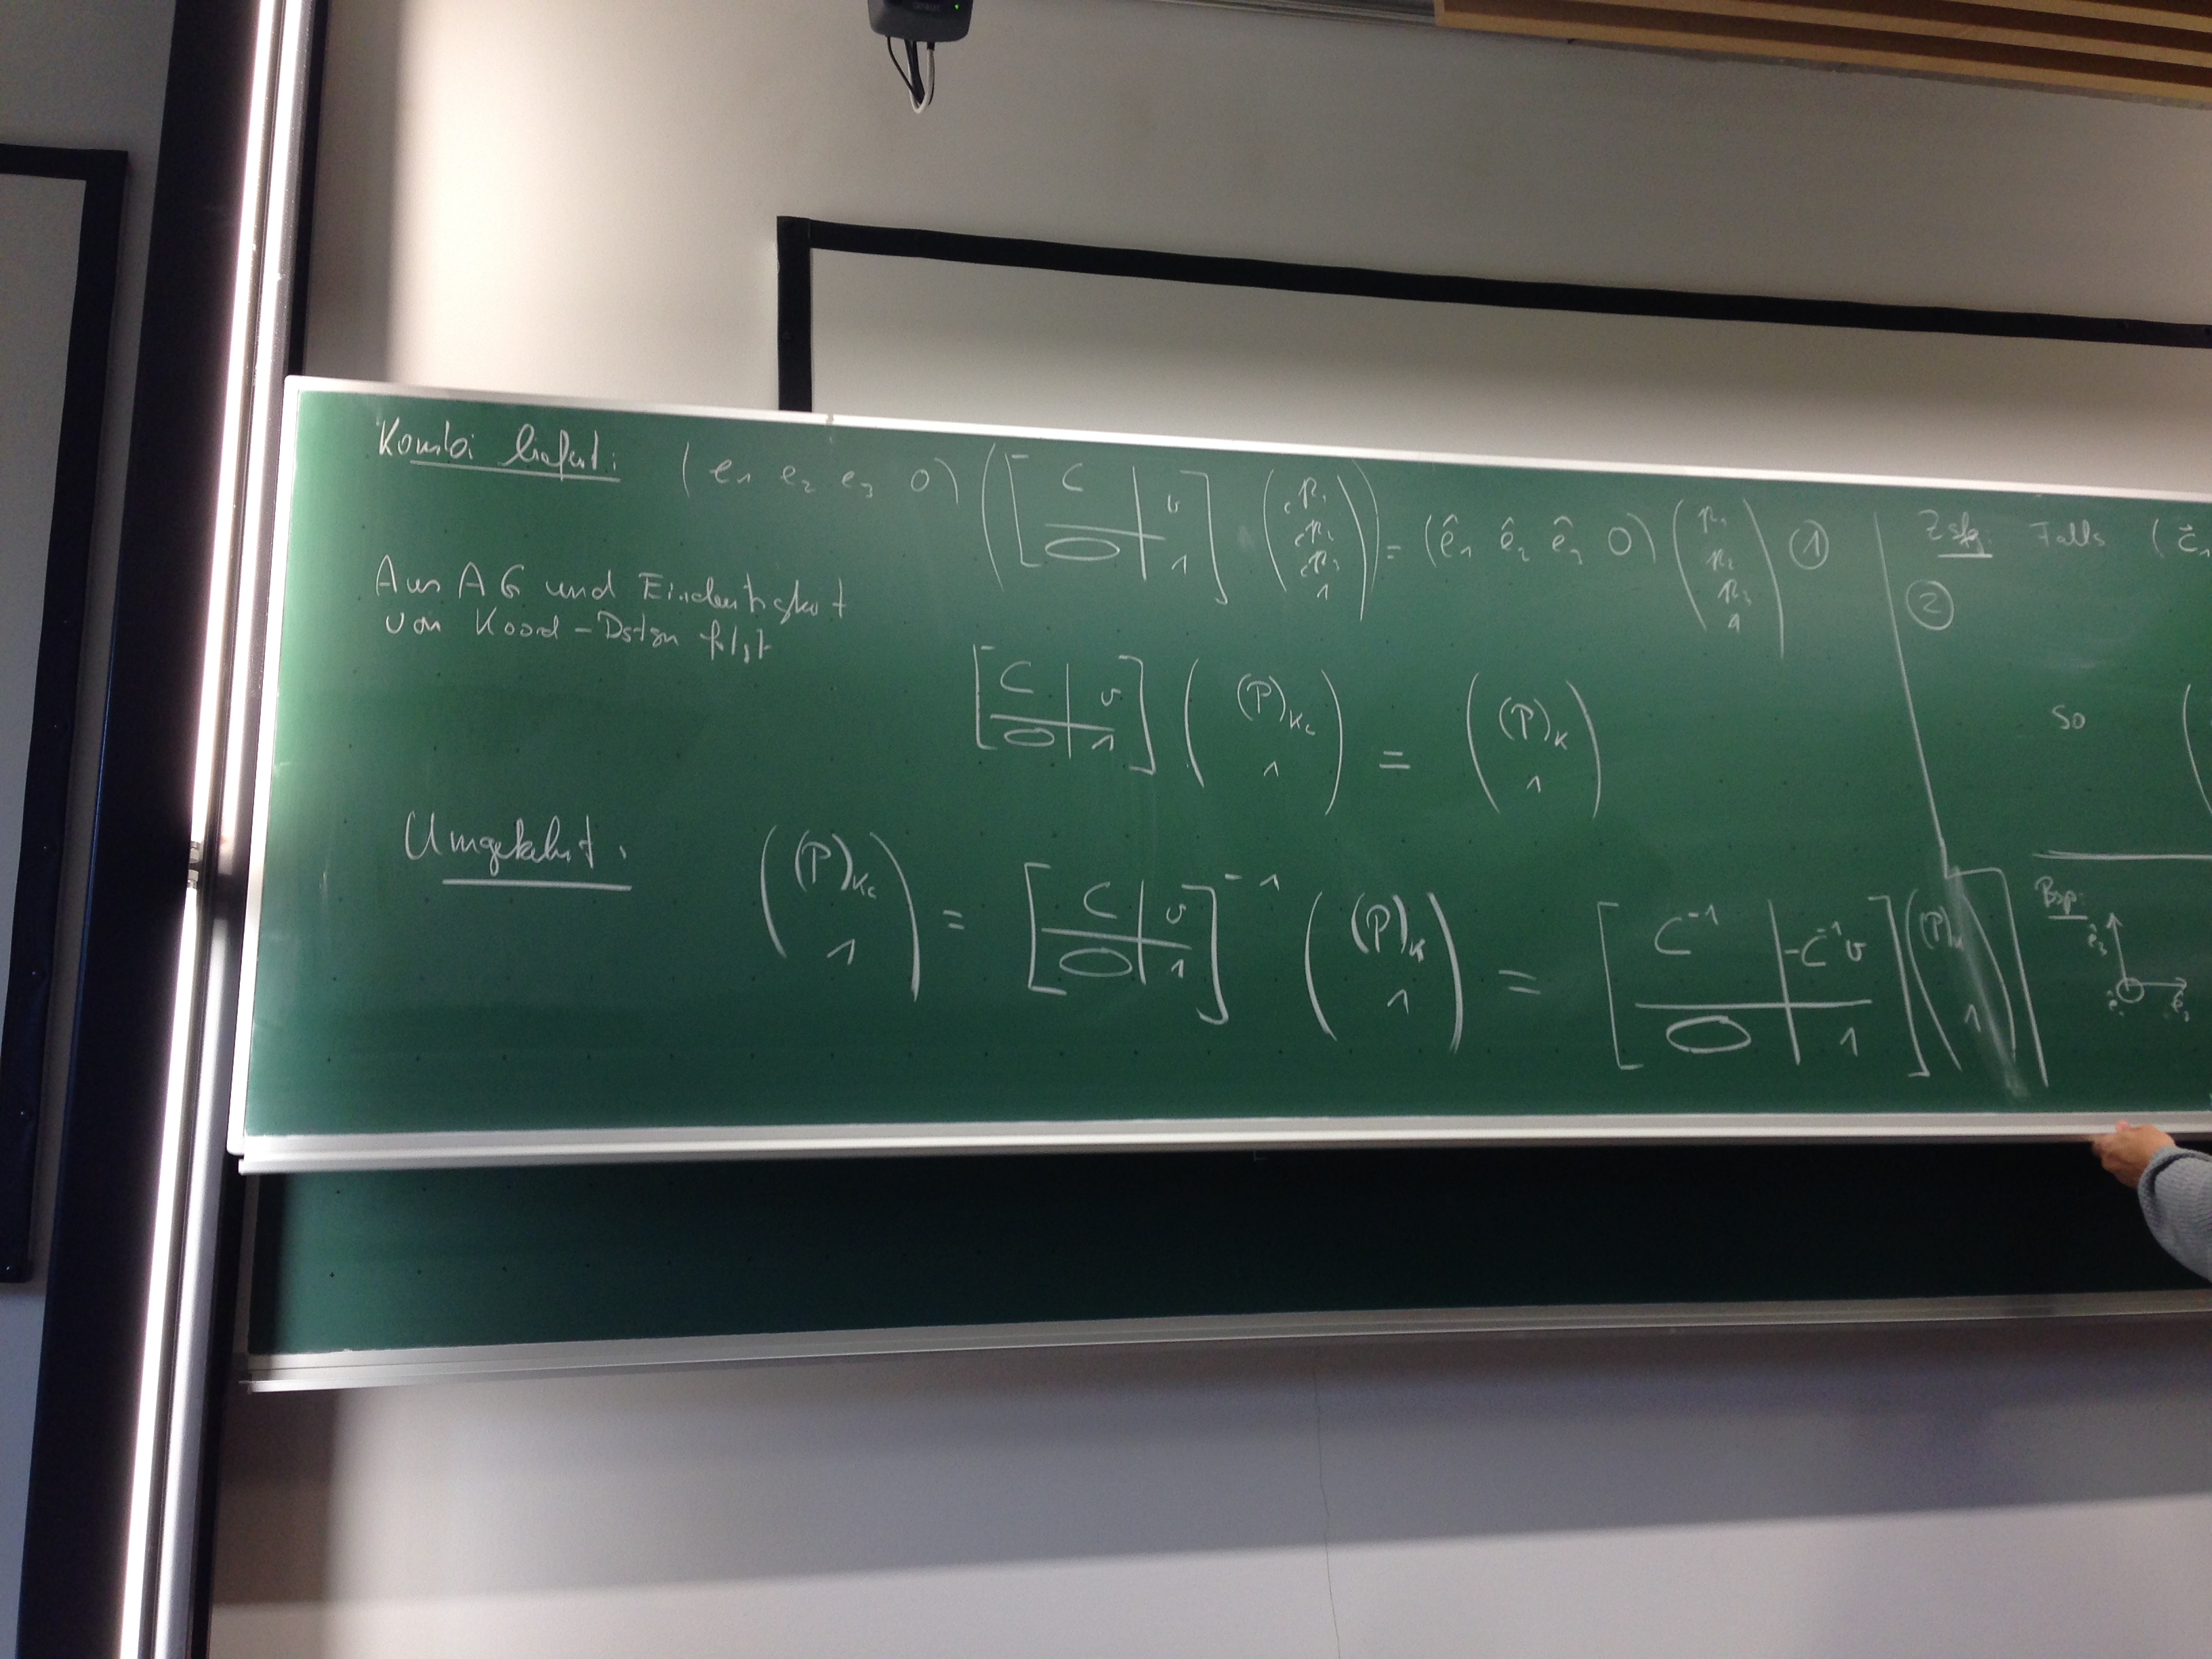 Kombi liefert: (e₁ e₂ e₃ O) ([C | v; 0 | 1] · (cp₁; cp₂; cp₃; 1)) = (ê₁ ê₂ ê₃ O) (p₁; p₂; p₃; 1) ①
Aus AG und Eindeutigkeit
von Koord-Dstgn folgt
[C | v; 0 | 1] ((P)_Kc; 1) = ((P)_K; 1)
Umgekehrt: ((P)_Kc; 1) = [C | v; 0 | 1]⁻¹ ((P)_K; 1) = [C⁻¹ | -C⁻¹v; 0 | 1] ((P)_K; 1)
Zsfg: Falls (c⃗₁
②
so (
Bsp:
ê₃
ê₁ ê₂